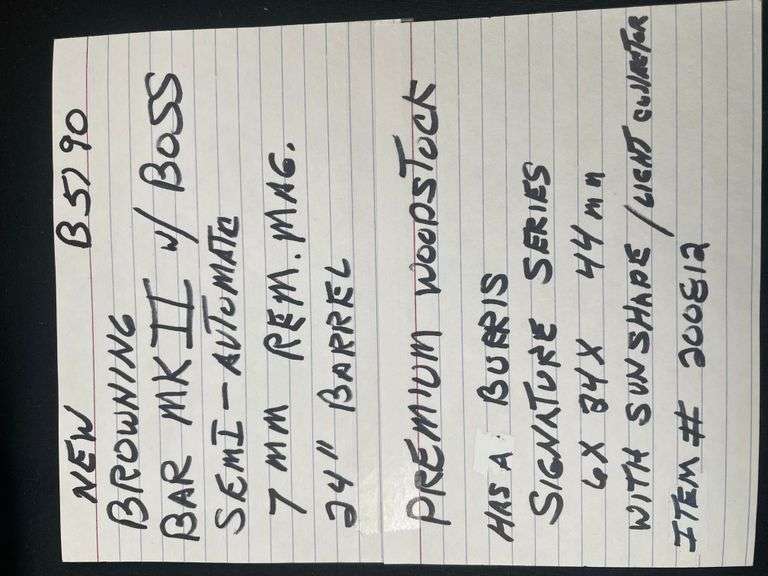 NEW B5790
BROWNING
BAR MK II W/ BOSS
SEMI-AUTOMATIC
7 MM REM. MAG.
24" BARREL
PREMIUM WOODSTOCK
HAS A BURRIS
SIGNATURE SERIES
6X 24X 44mm
WITH SUNSHADE / LIGHT
ITEM # 200812